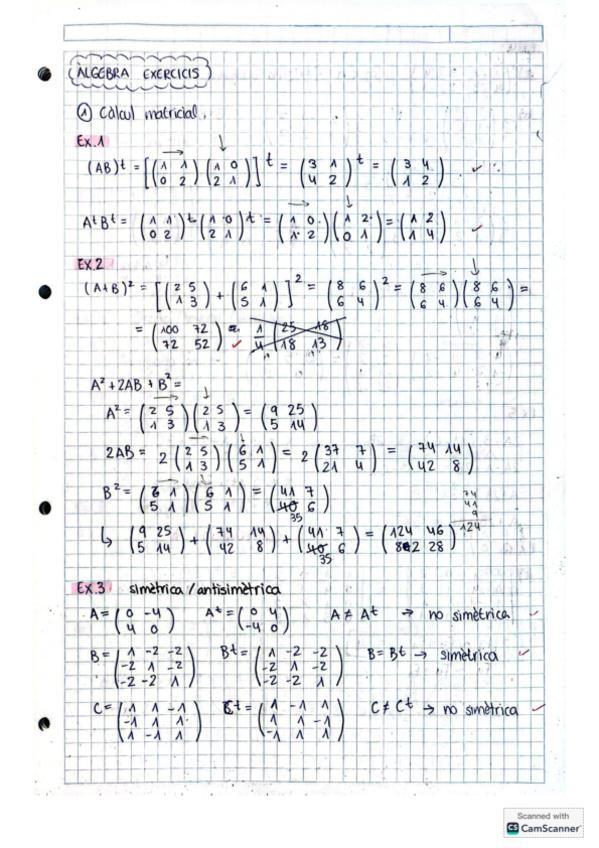 ÀLGEBRA EXERCICIS
① Càlcul matricial.
Ex.1
(AB)t = [(1 1; 0 2)(1 0; 2 1)]t = (3 1; 4 2)t = (3 4; 1 2) ✓
AtBt = (1 1; 0 2)t (1 0; 2 1)t = (1 0; 1 2)(1 2; 0 1) = (1 2; 1 4) ✓
Ex.2
(A+B)² = [(2 5; 1 3) + (6 1; 5 1)]² = (8 6; 6 4)² = (8 6; 6 4)(8 6; 6 4) =
= (100 72; 72 52) = 1/4 (25 18; 18 13)
A² + 2AB + B² =
A² = (2 5; 1 3)(2 5; 1 3) = (9 25; 5 14)
2AB = 2 (2 5; 1 3)(6 1; 5 1) = 2 (37 7; 21 4) = (74 14; 42 8)
B² = (6 1; 5 1)(6 1; 5 1) = (41 7; 40 35 6)
74
41
9
124
↳ (9 25; 5 14) + (74 14; 42 8) + (41 7; 40 35 6) = (124 46; 82 28)
Ex.3 simètrica / antisimètrica
A = (0 -4; 4 0) At = (0 4; -4 0) A ≠ At → no simètrica ✓
B = (1 -2 -2; -2 1 -2; -2 -2 1) Bt = (1 -2 -2; -2 1 -2; -2 -2 1) B = Bt → simètrica ✓
C = (1 1 -1; -1 1 1; 1 -1 1) Ct = (1 -1 1; 1 1 -1; -1 1 1) C ≠ Ct → no simètrica ✓
Scanned with
CS CamScanner